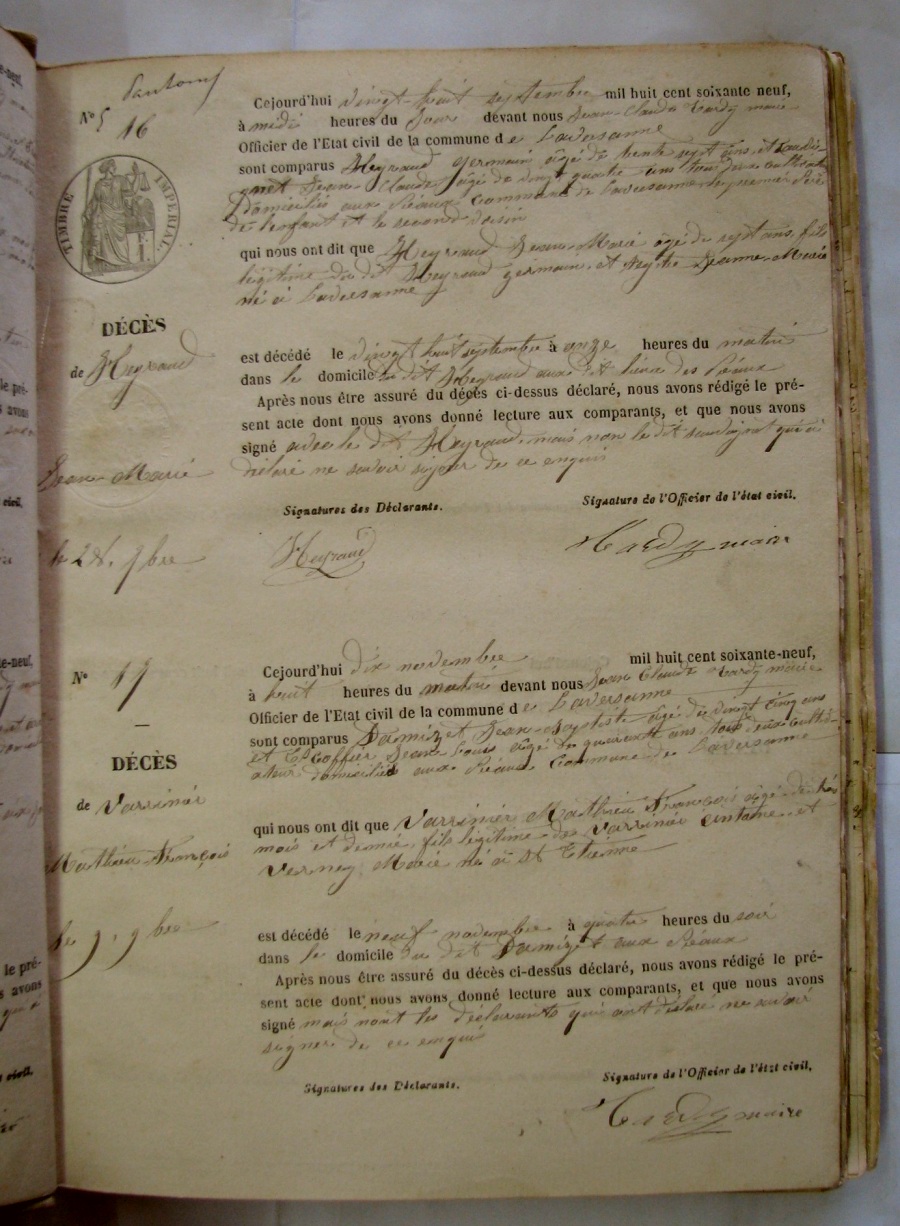 N° 5
16
TIMBRE IMPERIAL
DÉCÈS
de Heyraud
Jean-Marie
le 28. 7bre
Cejourd'hui vingt-huit septembre mil huit cent soixante neuf,
à midi heures du jour devant nous Jean-Claude Tardy maire
Officier de l'Etat civil de la commune de Laversanne
sont comparus Heyraud germain âgé de trente sept ans, et
Jean-Claude âgé de vingt quatre ans tous deux
Domiciliés aux Réaux commune de Laversanne le premier Père
de l'enfant et le second voisin
qui nous ont dit que Heyraud Jean-Marie âgé de sept ans, fils
légitime du dit Heyraud germain, et Jeanne-Marie
né à Laversanne
est décédé le vingt huit septembre à onze heures du matin
dans le domicile du dit Heyraud aux dit lieux des Réaux
Après nous être assuré du décès ci-dessus déclaré, nous avons rédigé le pré-
sent acte dont nous avons donné lecture aux comparants, et que nous avons
signé avec le dit Heyraud, mais non le dit qui a
déclaré ne savoir signer de ce enquis
Signatures des Déclarants.
Signature de l'Officier de l'état civil.
Heyraud
Tardy maire
N° 17
DÉCÈS
de Varinier
Mathieu François
le 9. 9bre
Cejourd'hui dix novembre mil huit cent soixante-neuf,
à huit heures du matin devant nous Jean Claude Tardy maire
Officier de l'Etat civil de la commune de Laversanne
sont comparus Damizet Jean-Baptiste âgé de vingt cinq ans
et Escoffier Jean Louis âgé de quarante ans tous deux culti-
ateur domiciliés aux Réaux Commune de Laversanne
qui nous ont dit que Varinier Mathieu François âgé de trois
mois et demie, fils légitime des Varinier Antoine et
Verney Marie né à St Etienne
est décédé le neuf novembre à quatre heures du soir
dans le domicile du dit Damizet aux Réaux
Après nous être assuré du décès ci-dessus déclaré, nous avons rédigé le pré-
sent acte dont nous avons donné lecture aux comparants, et que nous avons
signé mais nont les déclarants qui ont déclaré ne savoir
signer de ce enquis
Signatures des Déclarants.
Signature de l'Officier de l'état civil.
Tardy maire